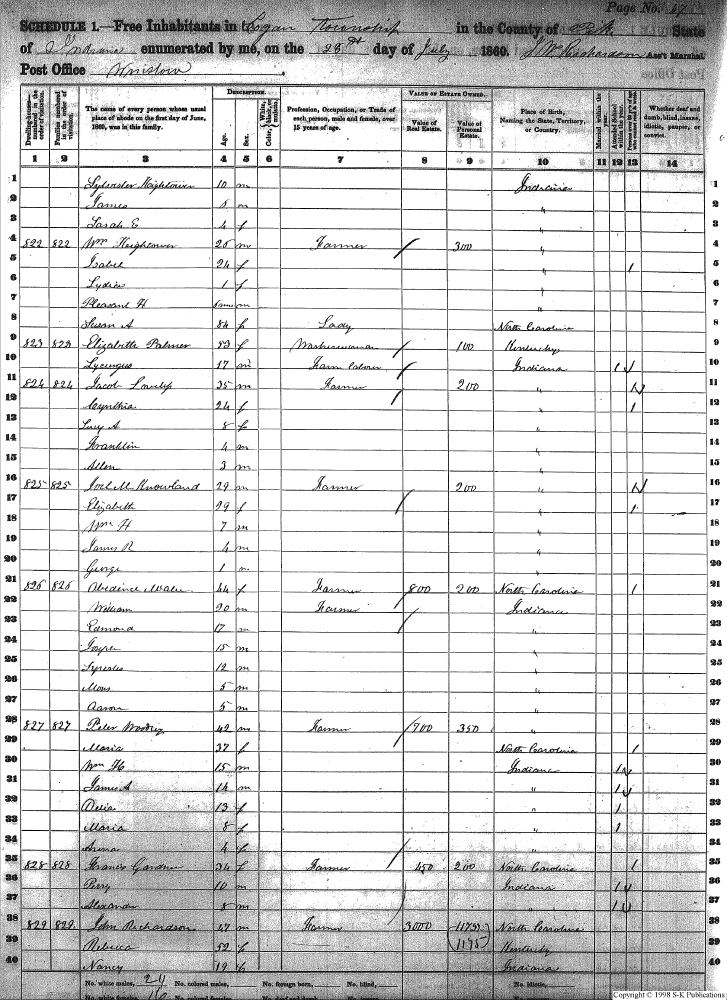 Page No. 67
SCHEDULE 1.—Free Inhabitants in Logan Township in the County of Pike State
of Indiana enumerated by me, on the 28th day of July 1860. J W Richardson Ass't Marshal
Post Office Winslow
Dwelling-houses numbered in the order of visitation.
Families numbered in the order of visitation.
The name of every person whose usual place of abode on the first day of June, 1860, was in this family.
DESCRIPTION.
Age.
Sex.
Color, White, black, or mulatto.
Profession, Occupation, or Trade of each person, male and female, over 15 years of age.
VALUE OF ESTATE OWNED.
Value of Real Estate.
Value of Personal Estate.
Place of Birth, Naming the State, Territory, or Country.
Married within the year.
Attended School within the year.
Whether deaf and dumb, blind, insane, idiotic, pauper, or convict.
1 2 3 4 5 6 7 8 9 10 11 12 13 14
1 Sylvester Hightower 10 m Indiana 1
2 James m " 2
3 Sarah E 4 f 3
4 822 822 Wm Hightower 26 m Farmer 300 " 4
5 Isabel 24 f " 1 5
6 Lydia 1 f " 6
7 Pleasant H m " 7
8 Susan A 84 f Lady North Carolina 8
9 823 823 Elizabeth Palmer 53 f Washerwoman 100 Kentucky 9
10 Lycurgus 17 m Farm Laborer Indiana 1 10
11 824 824 Jacob 35 m Farmer 200 " 11
12 Cynthia 24 f " 1 12
13 Lucy A 8 f 13
14 Franklin 4 m 14
15 Allen 3 m 15
16 825 825 Joel M Knowland 29 m Farmer 200 " 16
17 Elizabeth 29 f " 1 17
18 Wm H 7 m 18
19 James R 4 m 19
20 George 1 m 20
21 826 826 44 f Farmer 800 200 North Carolina 1 21
22 William 20 m Farmer Indiana 22
23 Edmond 17 m 23
24 15 m " 24
25 12 m 25
26 5 m " 26
27 Aaron 5 m " 27
28 827 827 Peter 42 m Farmer 700 350 " 28
29 Maria 37 f North Carolina 1 29
30 Wm H 15 m Indiana 1 30
31 James A 14 m " 1 31
32 Delia 13 f " 1 32
33 Maria 8 f " 1 33
34 4 f " 34
35 828 828 Francis Gardner 34 f Farmer 450 200 North Carolina 1 35
36 Perry 10 m Indiana 1 36
37 Alexander 8 m " 1 37
38 829 829 John Richardson 47 m Farmer 3000 1175 North Carolina 38
39 Rebecca 52 f (1175) Kentucky 39
40 Nancy 19 f Indiana 40
No. white males, 24 No. colored males, No. foreign born, No. blind, No. idiotic,
No. white females, 16 No. colored females,
Copyright © 1998 S-K Publications